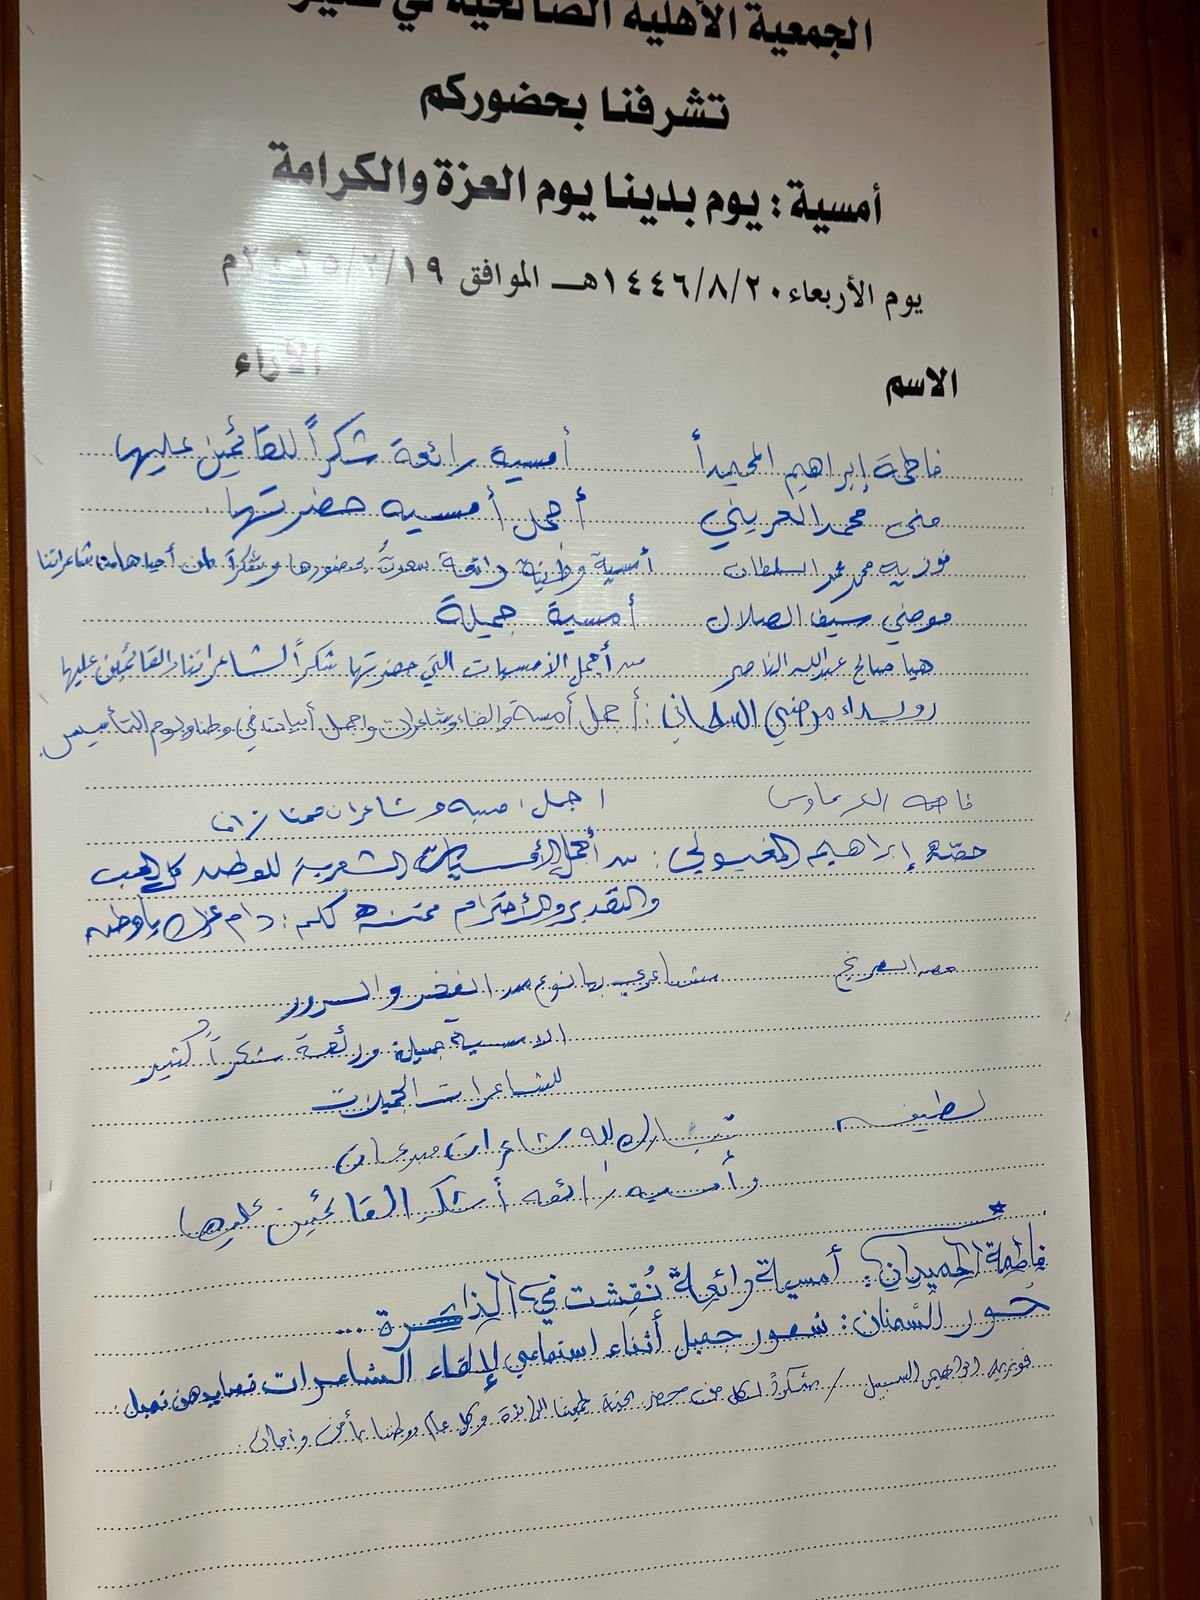 الجمعية الأهلية الصالحية في
تشرفنا بحضوركم
أمسية : يوم بدينا يوم العزة والكرامة
يوم الأربعاء ١٤٤٦/٨/٢٠هـ الموافق ٢٠٢٥/٢/١٩م
الاسم الآراء
فاطمة إبراهيم أمسية رائعة شكراً للقائمين عليها
منى محمد العريني أجمل أمسيه حضرتها
فوزيه محمد السلطان أمسية وطنية رائعة سعدتُ بحضورها وشكراً لمن أحياها من شاعراتنا
موضي سيف الصلال أمسية جميلة
هيا صالح عبدالله الناصر من أجمل الأمسيات التي حضرتها شكراً لشاعراتنا والقائمين عليها
رويداء مرضي : أجمل أمسية والقاء وشاعرات واجمل أبيات في وطنا ويوم التأسيس
اجمل امسيه وشاعرات ممتازات
حصة إبراهيم : من أجمل الأمسيات الشعرية للوطن كل الحب
والتقدير والاحترام ممتنه لكم : دام عزك يا وطن
مشاعري بها نوع من الفخر والسرور
الامسية جميلة ورائعة شكراً كثير
للشاعرات الجميلات
لطيفه تبارك الله شاعرات مبدعات
وأمسيه رائعه أشكر القائمين عليها
فاطمة الحميدان : أمسية رائعة نُقِشت في الذاكرة ...
حور السمنان : شعور جميل أثناء استماعي لإلقاء الشاعرات قصايدهن
فوزيه ابراهيم السبيل / شكراً لكل من حضر وكل عام ووطننا بأمن وأمان